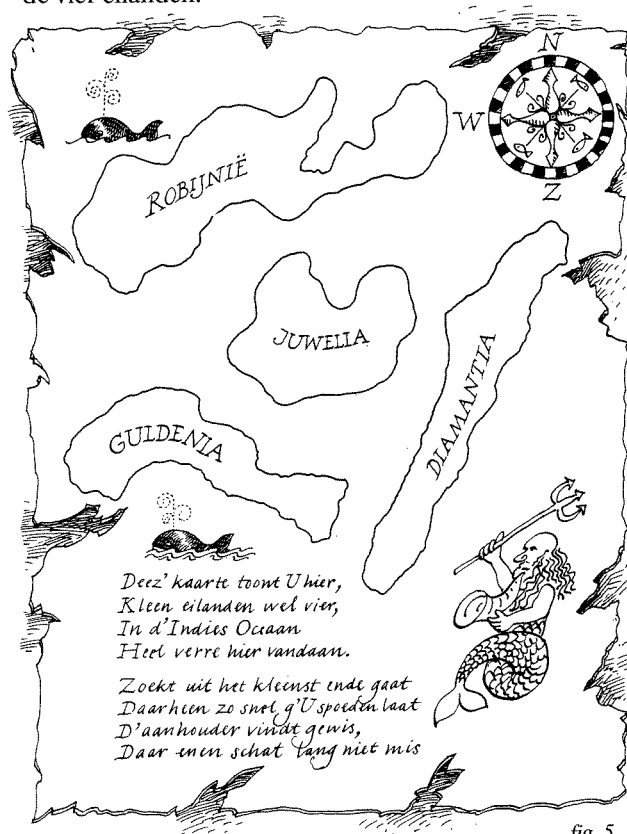 de vier eilanden.
N
W
Z
ROBIJNIË
JUWELIA
DIAMANTIA
GULDENIA
Deez' kaarte toont U hier,
Kleen eilanden wel vier,
In d'Indies Oceaan
Heel verre hier vandaan.
Zoekt uit het kleinst ende gaat
Daarheen zo snel g'U spoeden laat
D'aanhouder vindt gewis,
Daar enen schat lang niet mis
fig. 5